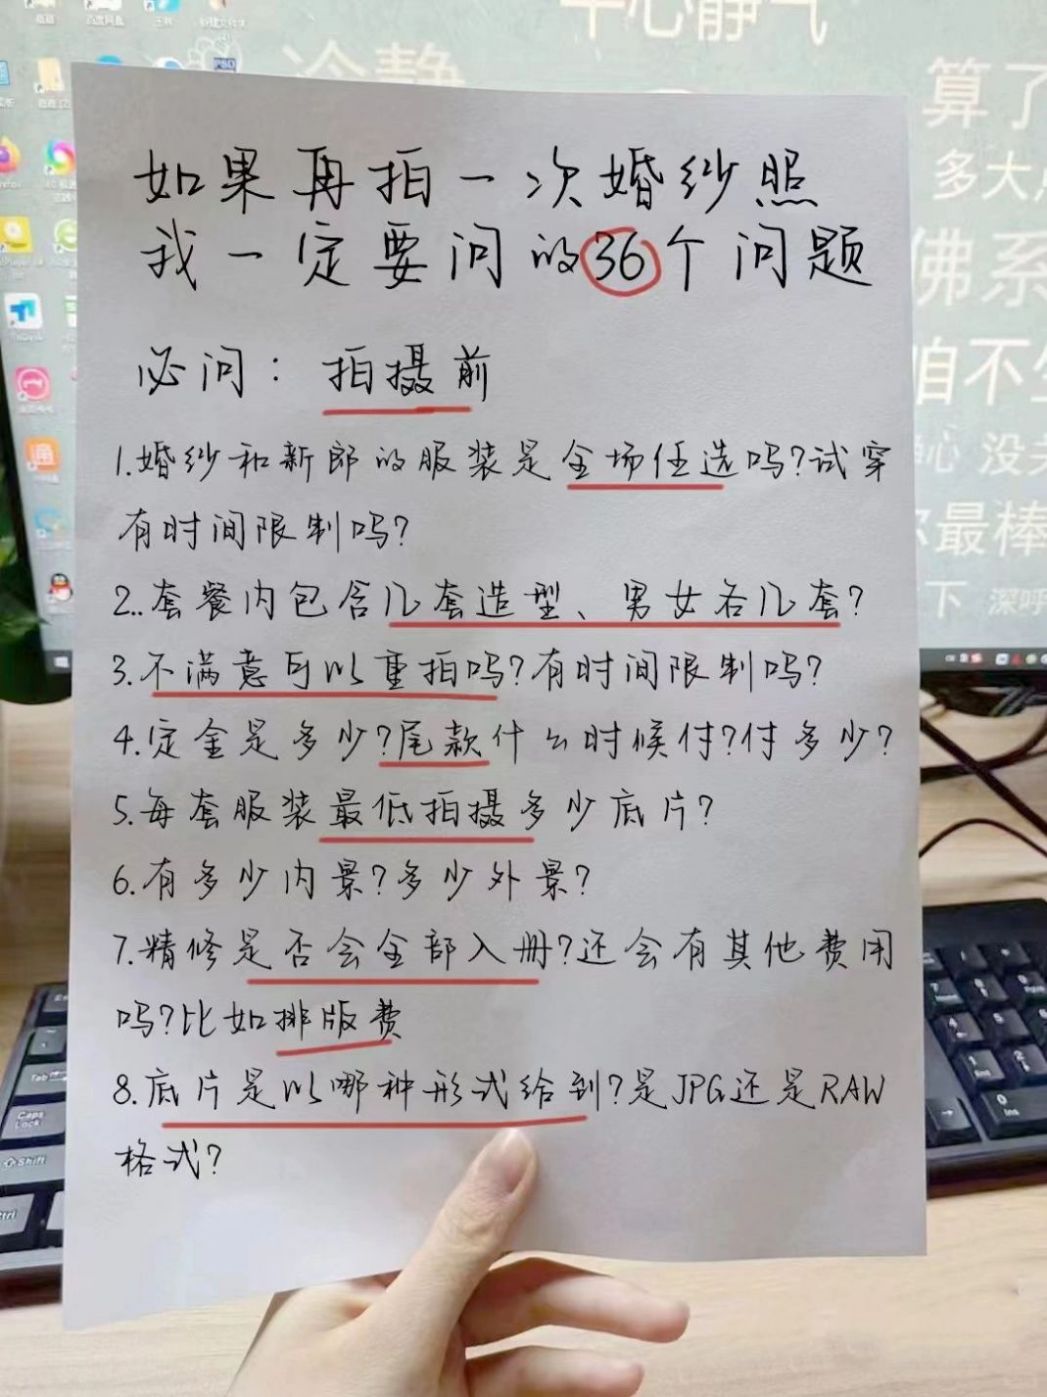 平心静气
冷静
算了
多大
佛系
咱不
没
最棒
下 深呼
如果再拍一次婚纱照
我一定要问的36个问题
必问：拍摄前
1.婚纱和新郎的服装是全场任选吗?试穿
有时间限制吗?
2..套餐内包含几套造型、男女各几套?
3.不满意可以重拍吗?有时间限制吗?
4.定金是多少?尾款什么时候付?付多少?
5.每套服装最低拍摄多少底片?
6.有多少内景?多少外景?
7.精修是否会全部入册?还会有其他费用
吗?比如排版费
8.底片是以哪种形式给到?是JPG还是RAW
格式?
Tab
Caps
Lock
Shift
Ctrl
7
4
1
5
2
0
Ins